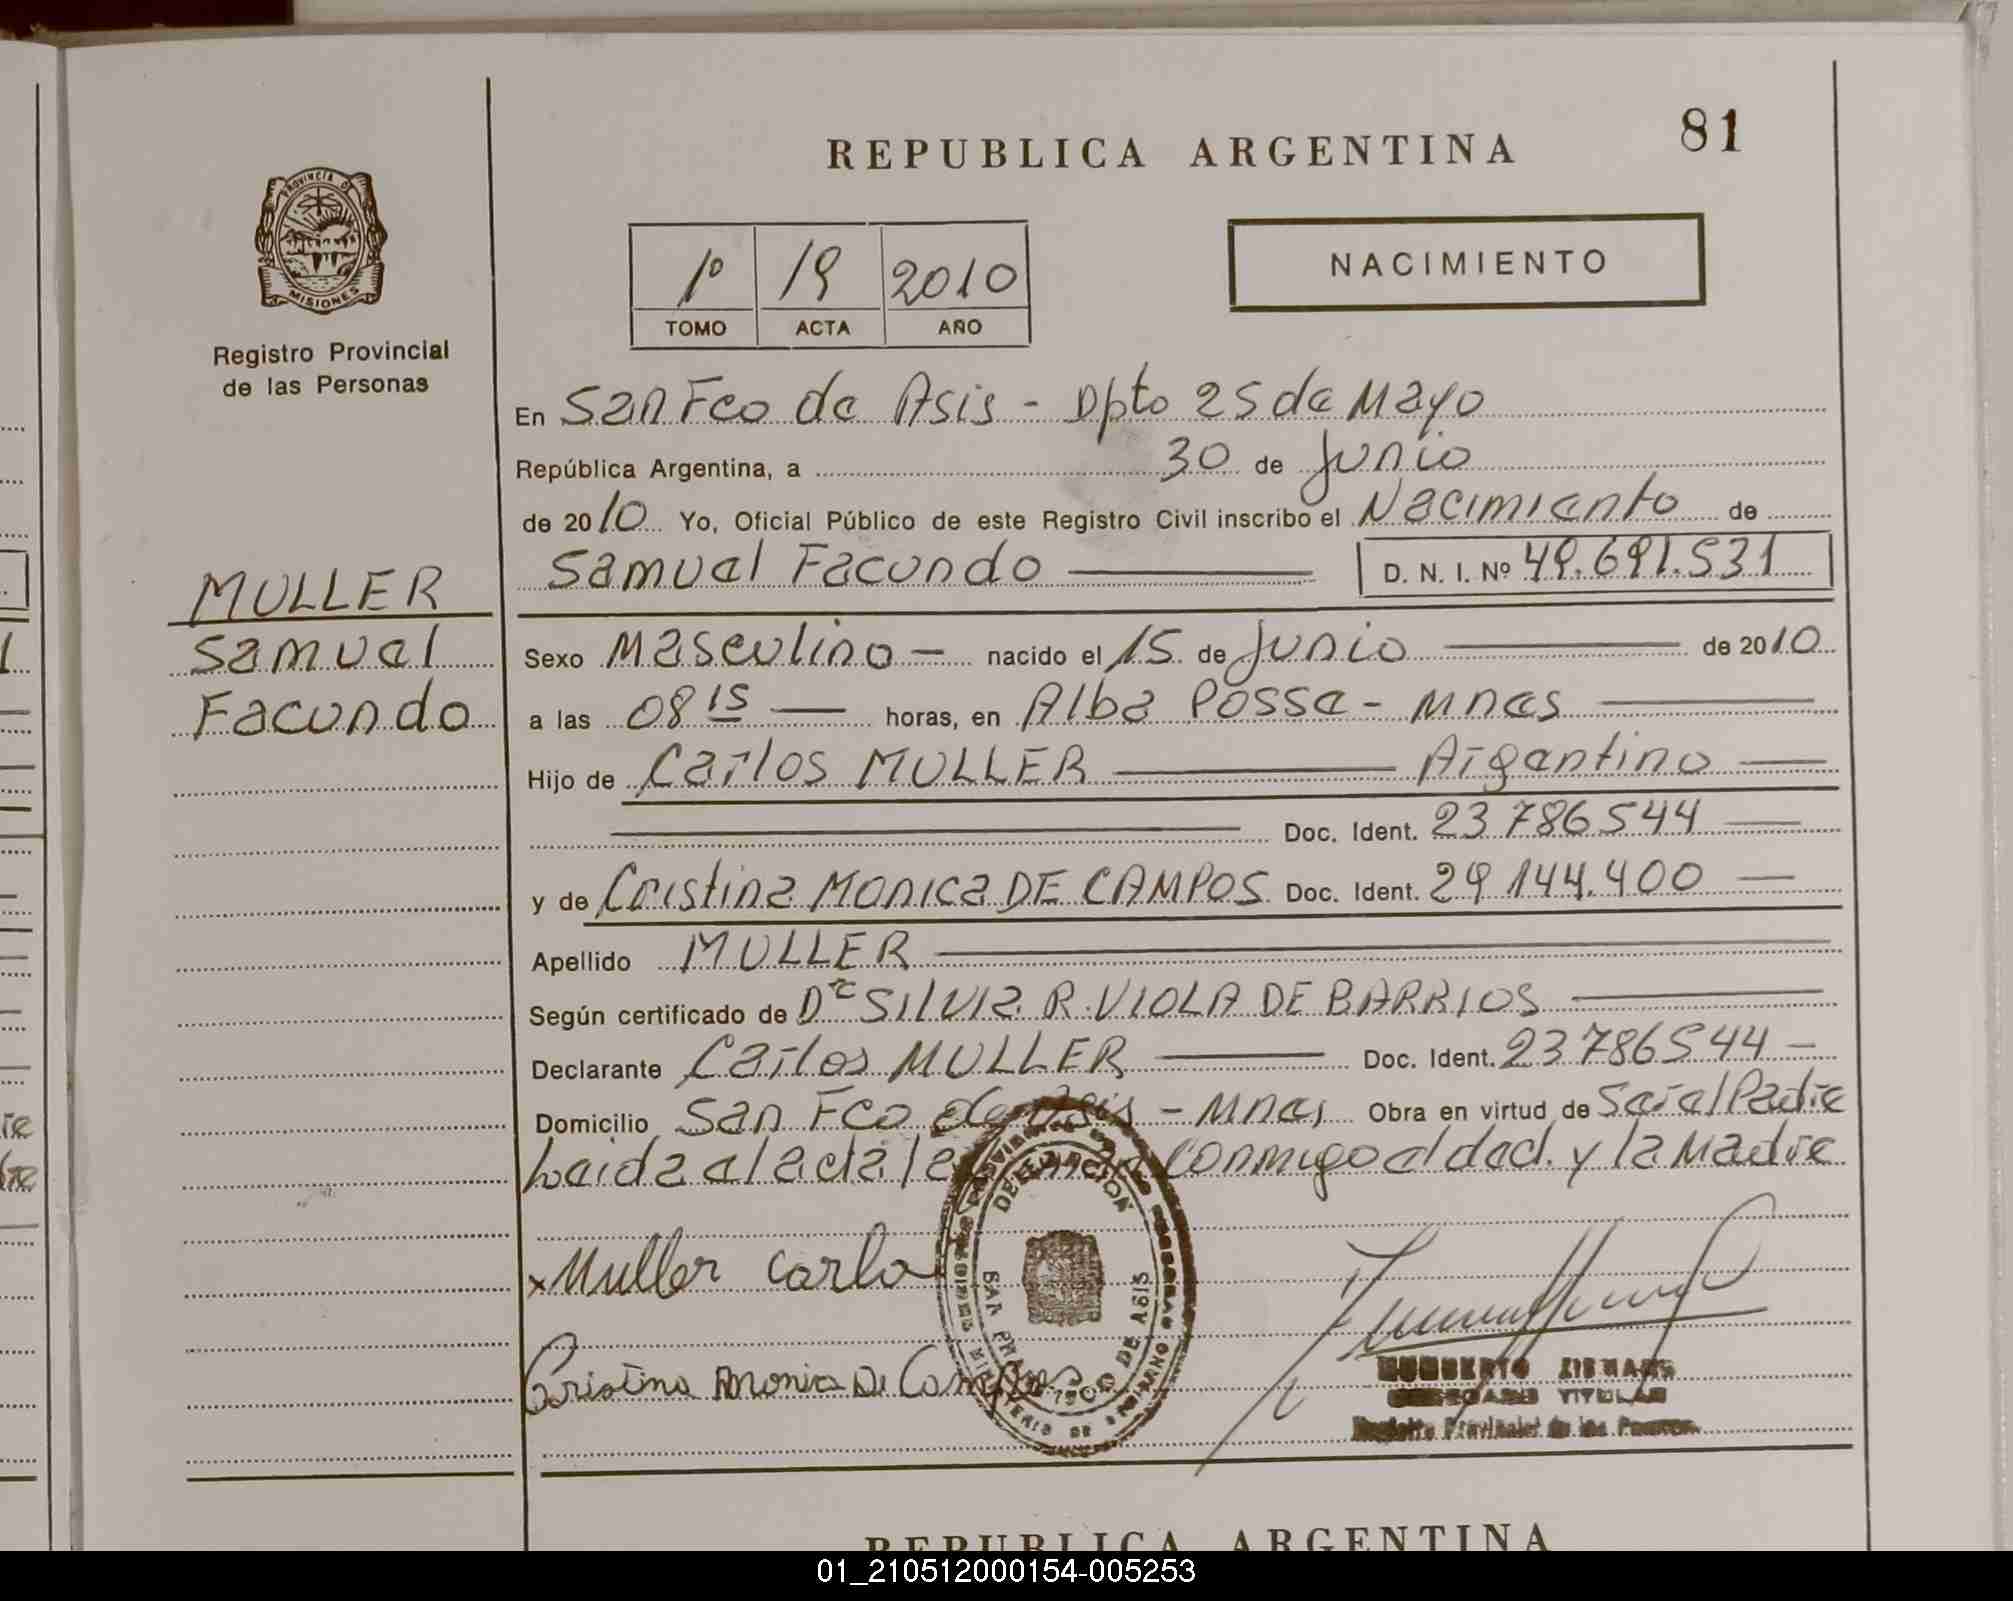 REPUBLICA ARGENTINA
81
PROVINCIA DE
MISIONES
Registro Provincial
de las Personas
1º 19 2010
TOMO ACTA AÑO
NACIMIENTO
En San Fco de Asis - Dpto 25 de Mayo
República Argentina, a 30 de Junio
de 2010 Yo, Oficial Público de este Registro Civil inscribo el Nacimiento de
Samuel Facundo D. N. I. Nº 49.691.531
MULLER
Samuel
Facundo
Sexo Masculino - nacido el 15 de Junio de 2010
a las 08 15 horas, en Alba Posse - Mnes
Hijo de Carlos MULLER Argentino
Doc. Ident. 23786544
y de Cristina Monica DE CAMPOS Doc. Ident. 29.144.400
Apellido MULLER
Según certificado de Dra SILVIA R. VIOLA DE BARRIOS
Declarante Carlos MULLER Doc. Ident. 23786544
Domicilio San Fco de Asis - Mnes Obra en virtud de Ser el Padre
Leida el acta la conmigo el decl. y la Madre
x Muller Carlo
Cristina Monica De Campos
DELEGACION
SAN FRANCISCO DE ASIS
TITULAR
Registro Provincial de las Personas
REPUBLICA ARGENTINA
01_210512000154-005253